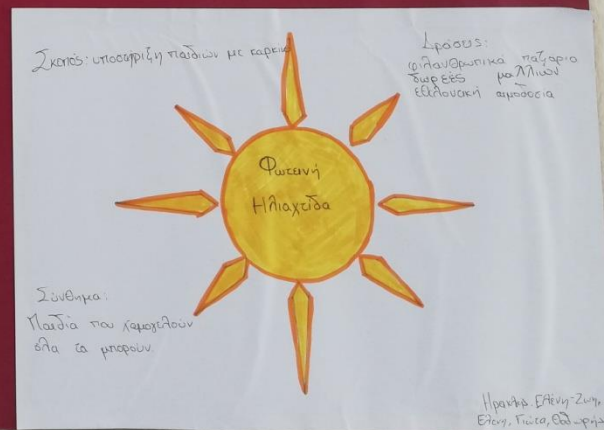 Σκοπός: υποστήριξη παιδιών με καρκίνο
Δράσεις:
φιλανθρωπικά παζάρια
δωρεές μαλλιών
εθελοντική αιμοδοσία
Φωτεινή
Ηλιαχτίδα
Σύνθημα:
Παιδιά που χαμογελούν
όλα τα μπορούν.
Ελένη-Ζωή,
Ελένη, Γιώτα,